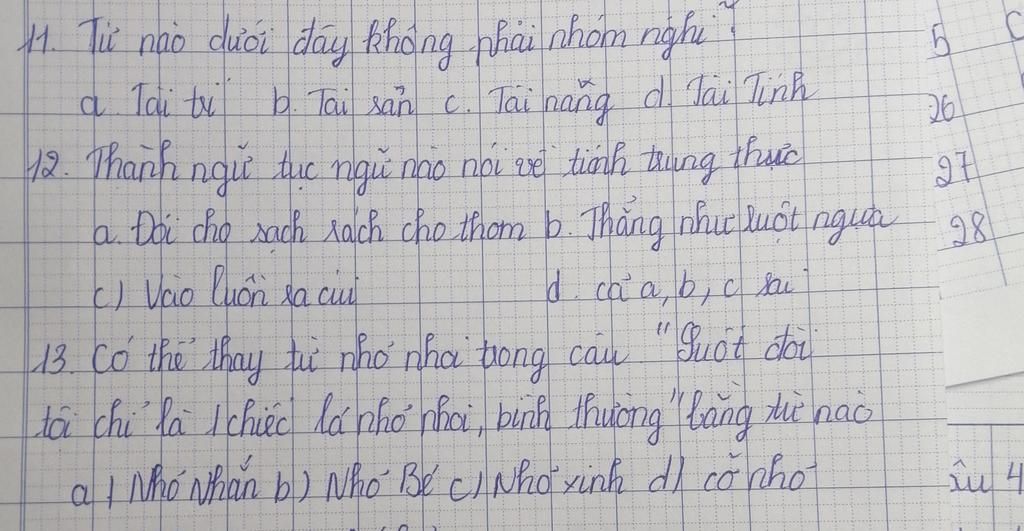 11. Từ nào dưới đây không phải nhóm nghĩ?
a. Tài trí b. Tài sản c. Tài năng d. Tài Tình
12. Thành ngữ tục ngữ nào nói về tính trung thực
a. Đói cho sạch rách cho thơm b. Thẳng như ruột ngựa
c) Vào luồn ra cúi d. cả a, b, c sai
13. Có thể thay từ nhỏ nhoi trong câu "Suốt đời
tôi chỉ là 1 chiếc lá nhỏ nhoi, bình thường" bằng từ nào
a) Nhỏ Nhắn b) Nhỏ Bé c) Nhỏ xinh d) cỏ nhỏ
5
26
27
28